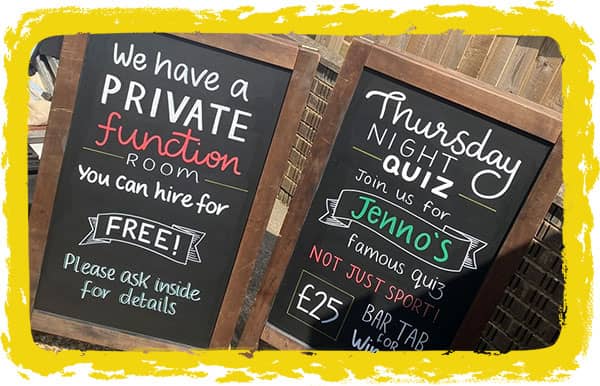 We have a
PRIVATE
function
ROOM
You can hire for
FREE!
Please ask inside
for details
Thursday
NIGHT
QUIZ
Join us for
Jenno's
famous quiz
NOT JUST SPORT!
£25
BAR TAB
FOR